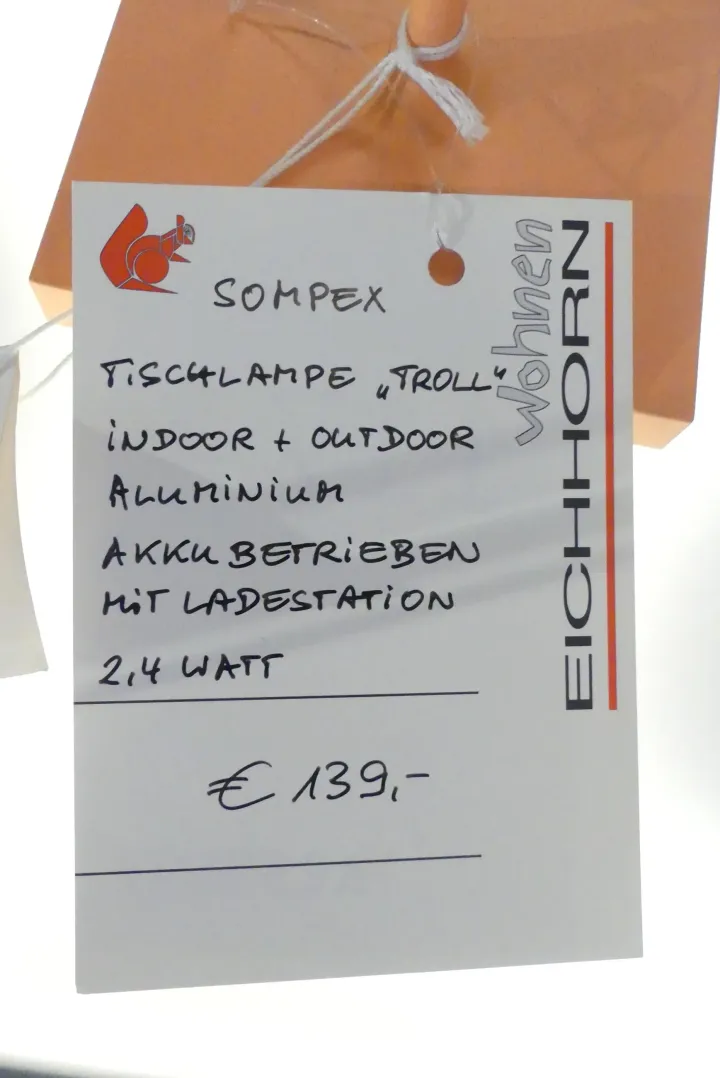 SOMPEX
TISCHLAMPE „TROLL“
INDOOR + OUTDOOR
ALUMINIUM
AKKU BETRIEBEN
MIT LADESTATION
2,4 WATT
€ 139,-
wohnen
EICHHORN